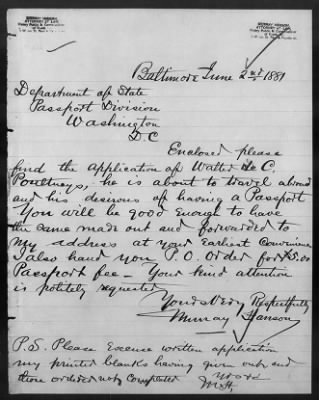 MURRAY HANSON,
ATTORNEY AT LAW,
Notary Public & Commissioner
MURRAY HANSON,
ATTORNEY AT LAW,
Notary Public & Commissioner
Baltimore June 2nd 1881
Department of State
Passport Division
Washington
D.C
Enclosed please
find the application of Walter de C.
Poultney, he is about to travel abroad
and his desirous of having a Passport
You will be good enough to have
the same made out and forwarded to
my address at your Earliest Convenience
I also hand you P.O. Order for $5.00
Passport fee — Your kind attention
is politely requested
Yours Very Respectfully
Murray Hanson
P.S. Please Excuse written application
my printed blanks having given out and
those ordered not Completed
Yours
M.H.